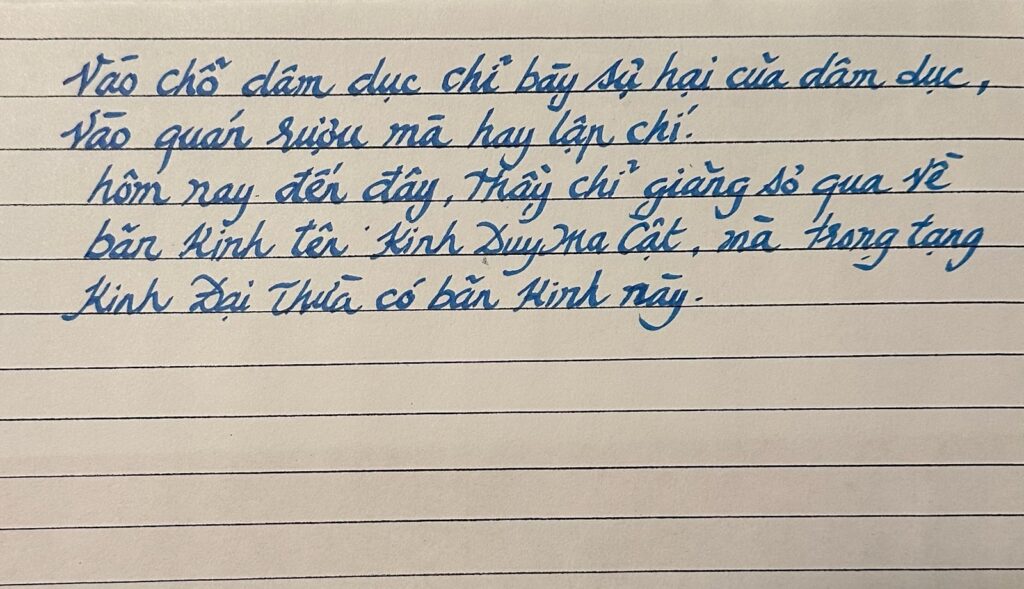 Vào chỗ dâm dục chỉ bày sự hại của dâm dục,
Vào quán rượu mà hay lập chí.
hôm nay đến đây, Thầy chỉ giảng sơ qua về
bản Kinh tên Kinh Duy Ma Cật, mà trong tạng
Kinh Đại Thừa có bản Kinh này.